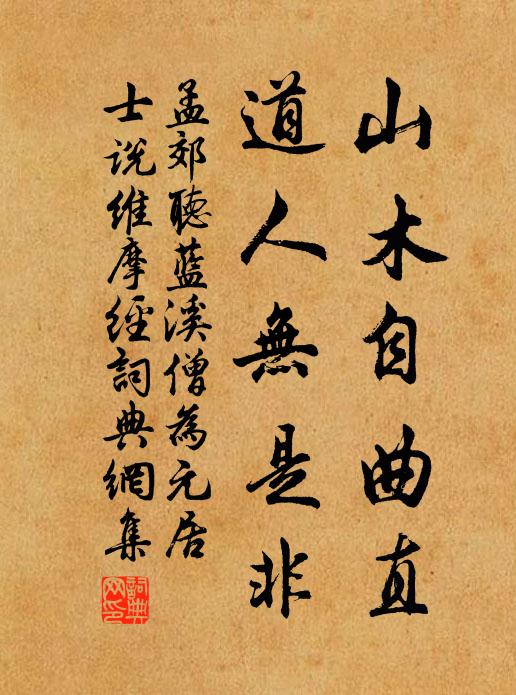 山木自曲直
道人無是非
孟郊聽藍溪僧為元居
士説維摩經詞典網集
詞典網印